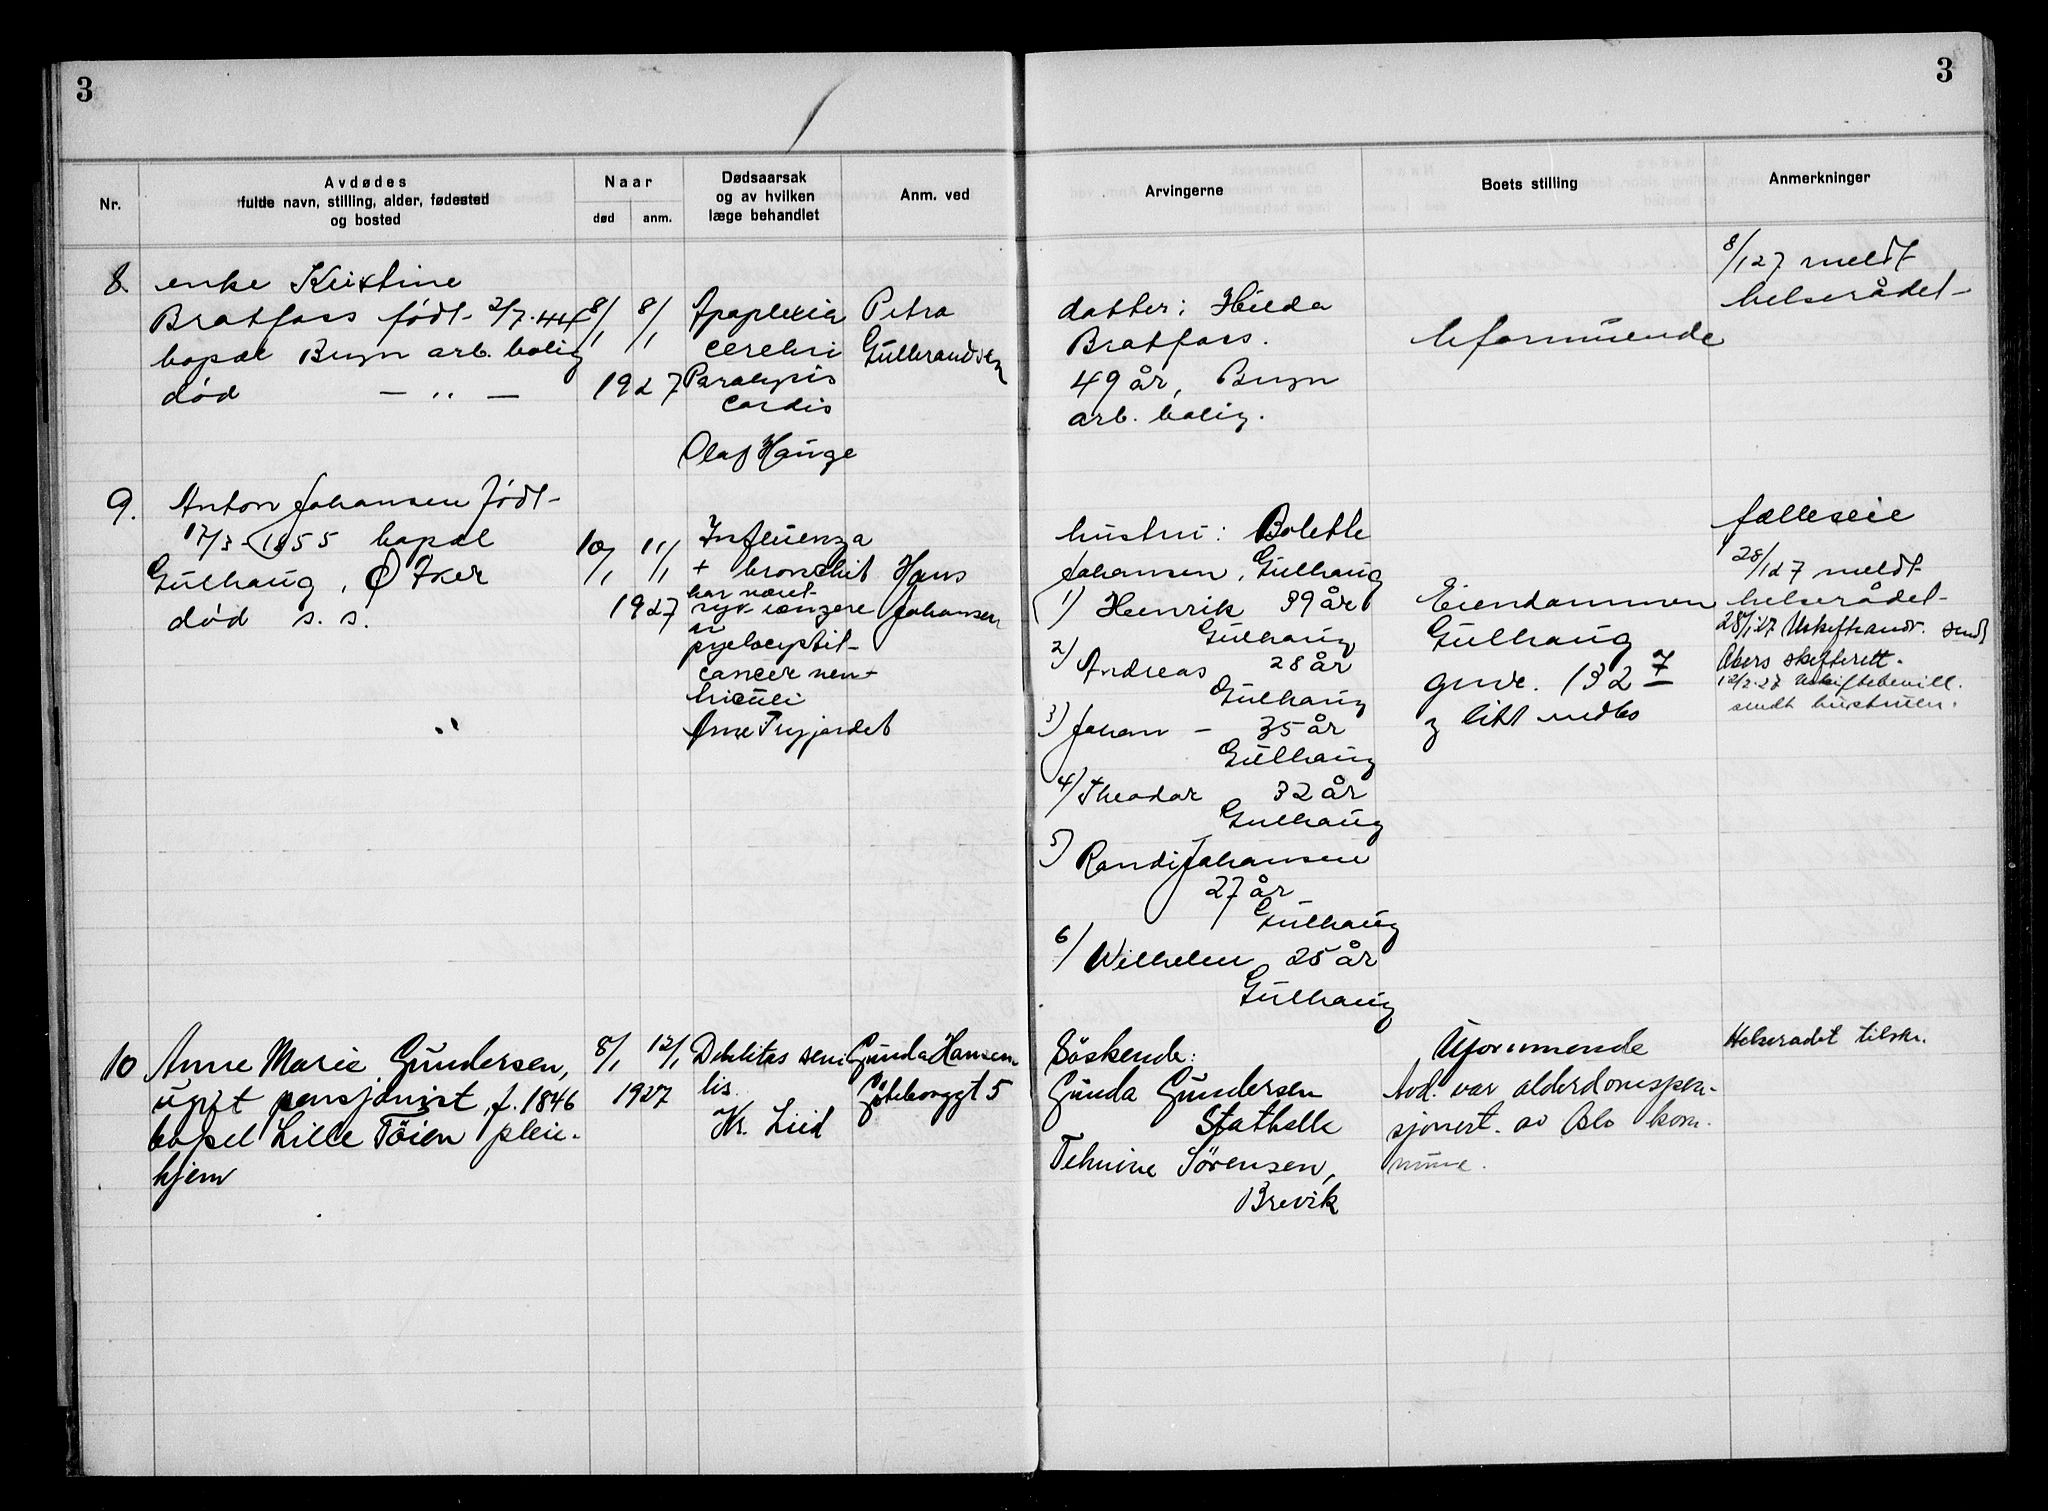 3
3
Nr.
Avdødes
fulde navn, stilling, alder, fødested
og bosted
Naar
død
anm.
Dødsaarsak
og av hvilken
læge behandlet
Anm. ved
Arvingerne
Boets stilling
Anmerkninger
8.
enke Kristine
Bratfoss født 2/7.44
bopæl Bryn arb. bolig
død — " —
8/1 8/1
1927
Apoplexia
cerebri
Paralysis
cordis
Olaf Hauge
Petra
Gulbrandsen
datter: Hilda
Bratfoss.
49 år, Bryn
arb. bolig.
Uformuende
8/1 27 meldt
helserådet
9.
Anton Johansen født
17/3 1855 bopæl
Gulhaug, Ø Aker
død s. s.
"
10/1 11/1
1927
Influenza
+ bronchit
har været
syk længere
av
pyelocystit
cancer ven-
triculi
Arne
Hans
Johansen
hustru: Bolette
Johansen, Gulhaug
1) Henrik 39 år
Gulhaug
2) Andreas 28 år
Gulhaug
3) Johan — 35 år
Gulhaug
4) Theodor 32 år
Gulhaug
5) Randi Johansen
27 år
Gulhaug
6) Wilhelm 25 år
Gulhaug
Eiendommen
Gulhaug
gnr. 132 7
og litt indbo
fælleseie
28/1 27 meldt
helserådet
28/1 27 Uskifteandr. sendt
Akers skifterett.
12/2.27 Uskiftebevill.
sendt hustruen.
10
Anne Marie Gundersen,
ugift pensjonist, f. 1846
bopel Lille Töien pleie-
hjem
8/1 12/1
1927
Debilitas seni-
lis.
Kr. Lied
Gunda Hansen
Göteborggt 5
Söskende:
Gunda Gundersen
Stathelle
Telmine Sörensen,
Brevik
Uformuende
Avd. var alderdomspen-
sjonert. av Oslo kom-
mune.
Helserådet tilskr.